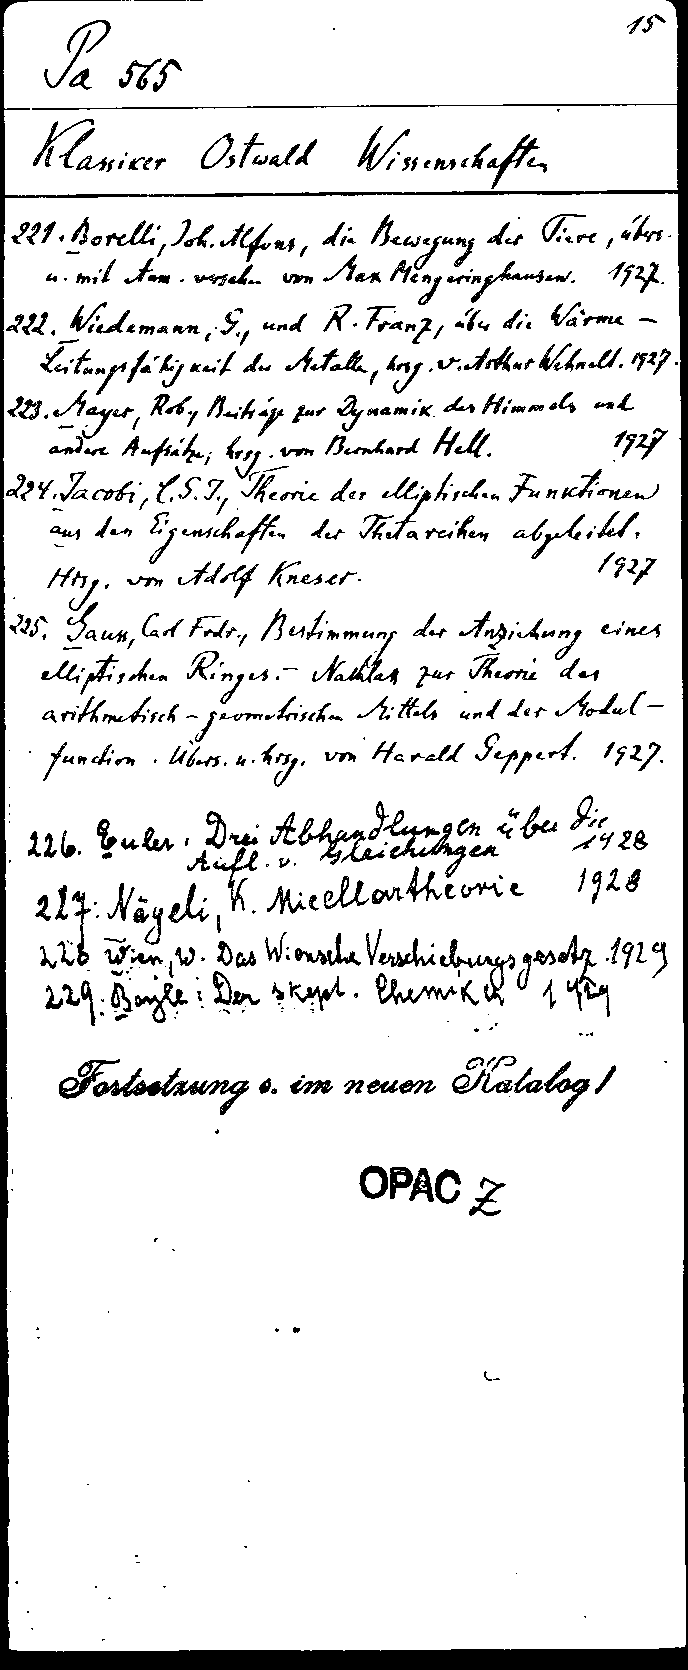 15
Pa 565
Klassiker Ostwald Wissenschaften
221. Borelli, Joh. Alfons, die Bewegung der Tiere, übers.
u. mit Anm. versehen von Max Mengeringhausen. 1927.
222. Wiedemann, G., und R. Franz, über die Wärme-
Leitungsfähigkeit der Metalle, hrsg. v. Arthur Wehnelt. 1927.
223. Mayer, Rob., Beiträge zur Dynamik des Himmels und
andere Aufsätze; hrsg. von Bernhard Hell. 1927
224. Jacobi, C.G.J., Theorie der elliptischen Funktionen
aus den Eigenschaften der Thetareihen abgeleitet.
Hrsg. von Adolf Kneser. 1927
225. Gauss, Carl Frdr., Bestimmung der Anziehung eines
elliptischen Ringes. - Nachlass zur Theorie des
arithmetisch-geometrischen Mittels und der Modul-
function. Übers. u. hrsg. von Harald Geppert. 1927.
226. Euler: Drei Abhandlungen über die
Aufl. v. Gleichungen 1928
227: Nägeli, K. Micellartheorie 1928
228 Wien, W. Das Wiensche Verschiebungsgesetz. 1929
229. Boyle: Der skept. Chemiker 1929
Fortsetzung s. im neuen Katalog!
OPAC Z